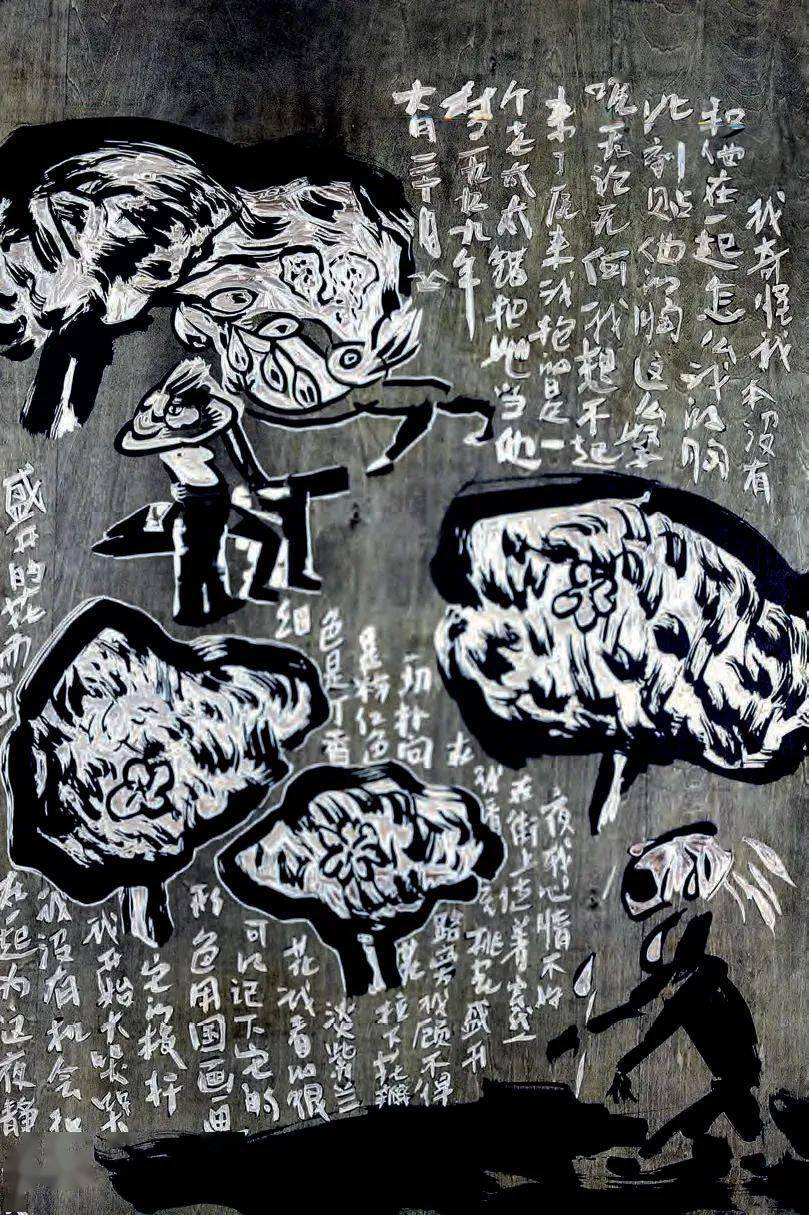 我奇怪我本没有
和他在一起怎么我的胸
此刻贴他的胸这么紧
呢无论无何我想不起
来了后来我抱的是一
个老太太错把她当他
梦一九九九年
夜我心情不好
在街上走着突然
我看到桃花盛开
路旁我顾不得
一切扑向花拉下花瓣
是粉红色淡紫兰
色是丁香花我看的很
细可以记下它的
形色用国画画
它的枝杆
我开始大哭哭
我没有机会和
在一起为这夜静
盛开的花而